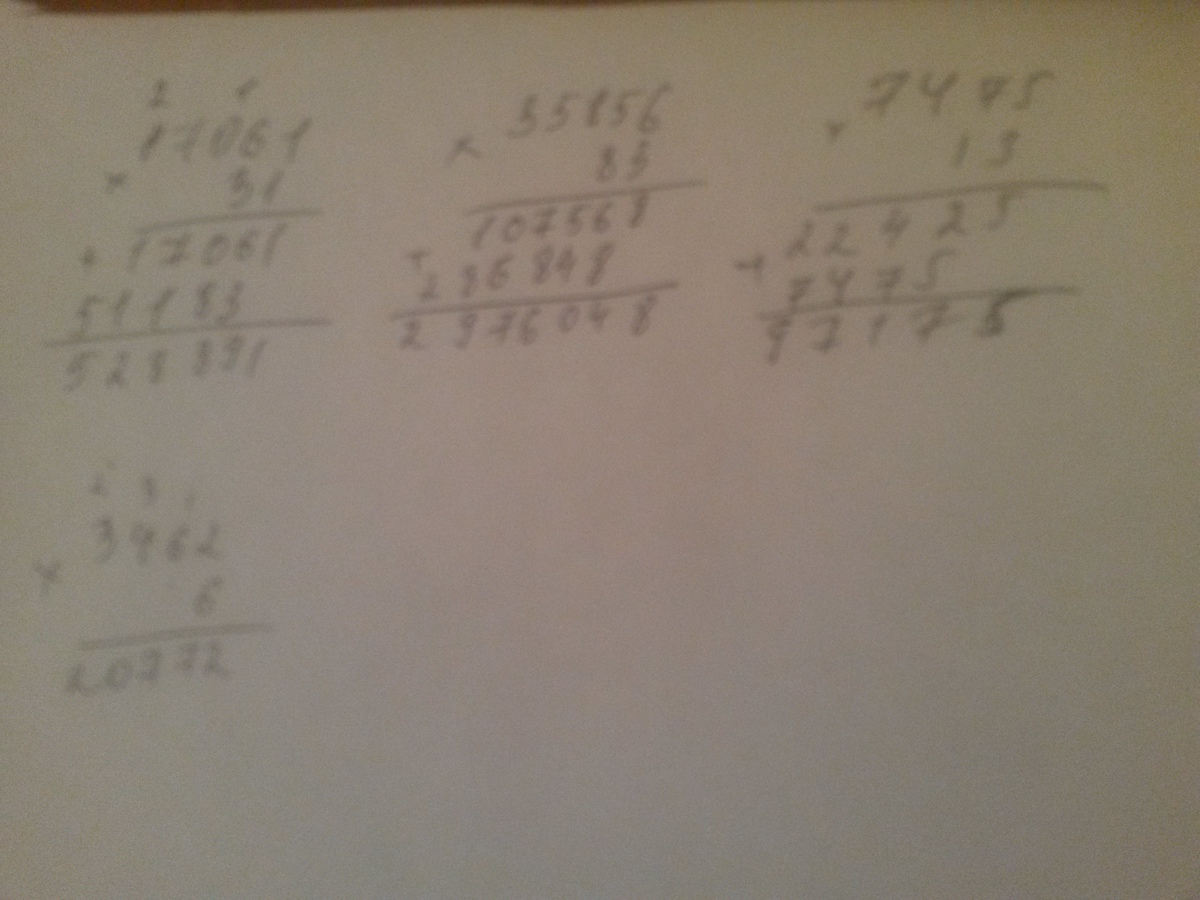 2 1
17061
× 31
+ 17061
51183
528891
× 35856
83
107568
+ 286848
2976048
× 7475
13
22425
+ 7475
97175
2 3 1
3462
× 6
20772